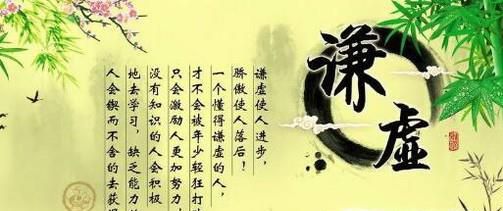 谦虚
谦虚使人进步，
骄傲使人落后！
一个懂得谦虚的人，
才不会被年少轻狂打
只会激励人更加努力
没有知识的人会积极
地去学习，缺乏能力
人会锲而不舍的去获